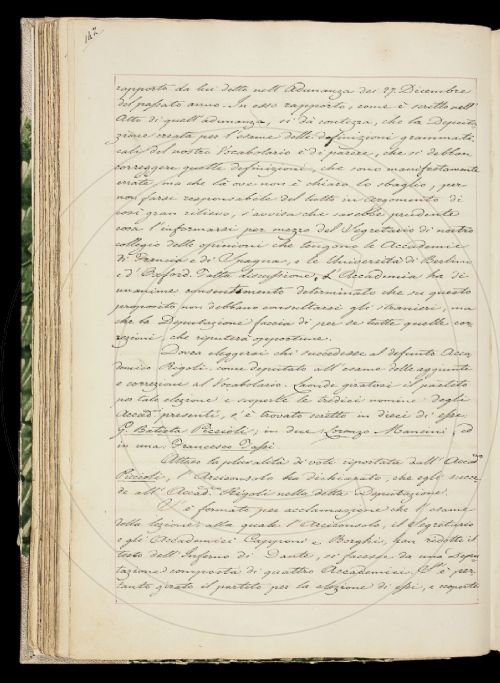 142
rapporto da lui detto nell'Adunanza dei 27. Dicembre
del passato anno. In esso rapporto, come è scritto nell'
Atto di quell'adunanza, si dà contezza, che la Deputa-
zione creata per l'esame delle definizioni grammati-
cali del nostro Vocabolario è di parere, che si debban
correggere quelle definizioni, che sono manifestamente
errate, ma che là ove non è chiaro lo sbaglio, per
non farsi responsabile del tutto in argomento di
così gran rilievo, s'avvisa che sarebbe prudente
cosa l'informarsi per mezzo del Segretario di nostro
collegio delle opinioni che tengono le Accademie
di Francia e di Spagna, e le Università di Berlino
e d'Oxford. Fatta discussione, l'Accademia ha di
unanime consentimento determinato che su questo
proposito non debbano consultarsi gli stranieri, ma
che la Deputazione faccia di per se tutte quelle cor-
rezioni che reputerà opportune.
Dovea eleggersi chi succedesse al defunto Acca-
demico Rigoli come deputato all'esame delle aggiunte
e correzione al Vocabolario. Laonde giratosi il partito
per tale elezione e scoperte le tredici nomine degli
Accad. presenti, s'è trovato scritto in dieci di esse
G. Batista Piccioli, in due Lorenzo Mancini, ed
in una Francesco Tassi.
Attesa la pluralità di voti riportata dall'Accad.
Piccioli, l'Arciconsolo ha dichiarato, che egli succe-
de all'Accad. Rigoli nella detta Deputazione.
S'è fermato per acclamazione che l'esame
della lezione, alla quale l'Arciconsolo, il Segretario
e gli Accademici Capponi e Borghi, han ridotto il
testo dell'Inferno di Dante, si facesse da una depu-
tazione composta di quattro Accademici. S'è per-
tanto girato il partito per la elezione di essi, e scoperte